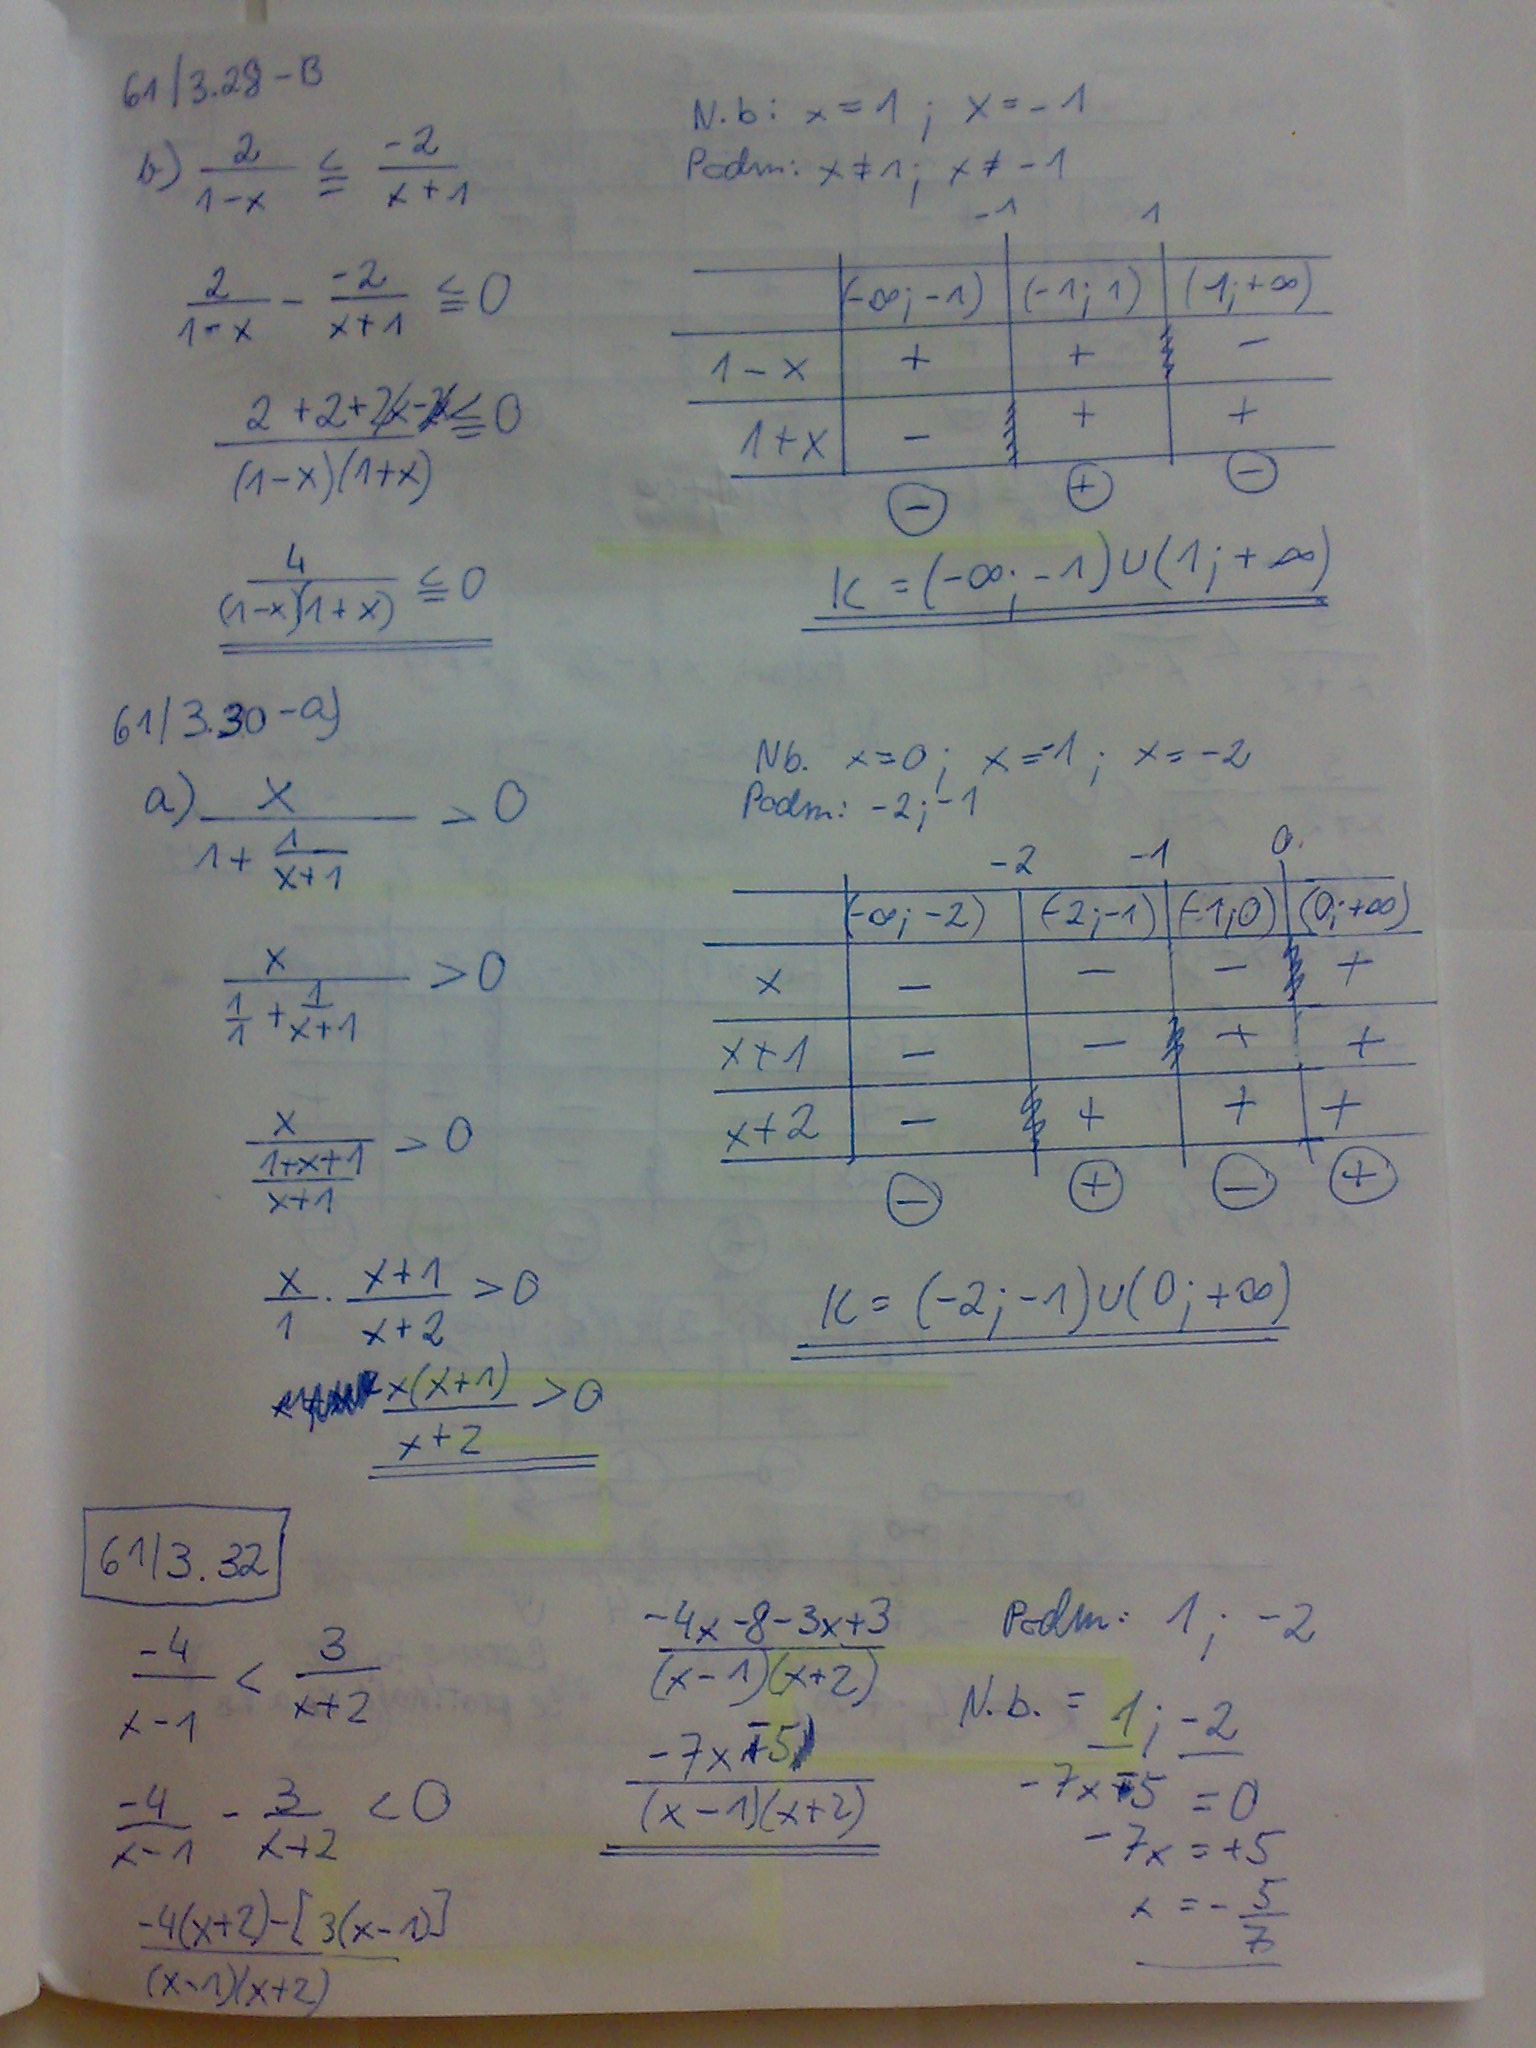 61/3.28-B
b) 2/(1-x) ≦ -2/(x+1)
2/(1-x) - -2/(x+1) ≦ 0
2+2+2x-2x ≦ 0
(1-x)(1+x)
4/((1-x)(1+x)) ≦ 0
N.b: x=1; x=-1
Podm: x≠1; x≠-1
-1 1
(-∞;-1) (-1;1) (1;+∞)
1-x + + -
1+x - + +
- + -
K=(-∞;-1)∪(1;+∞)
61/3.30-a)
a) x/(1+1/(x+1)) > 0
x/(1/1+1/(x+1)) > 0
x/((1+x+1)/(x+1)) > 0
x/1 · (x+1)/(x+2) > 0
x(x+1)/(x+2) > 0
Nb. x=0; x=-1; x=-2
Podm: -2;-1
-2 -1 0
(-∞;-2) (-2;-1) (-1;0) (0;+∞)
x - - - +
x+1 - - + +
x+2 - + + +
- + - +
K=(-2;-1)∪(0;+∞)
61/3.32
-4/(x-1) < 3/(x+2)
-4/(x-1) - 3/(x+2) < 0
-4(x+2)-[3(x-1)]
(x-1)(x+2)
-4x-8-3x+3
(x-1)(x+2)
-7x-5
(x-1)(x+2)
Podm: 1; -2
N.b. = 1; -2
-7x-5 = 0
-7x = +5
x = -5/7